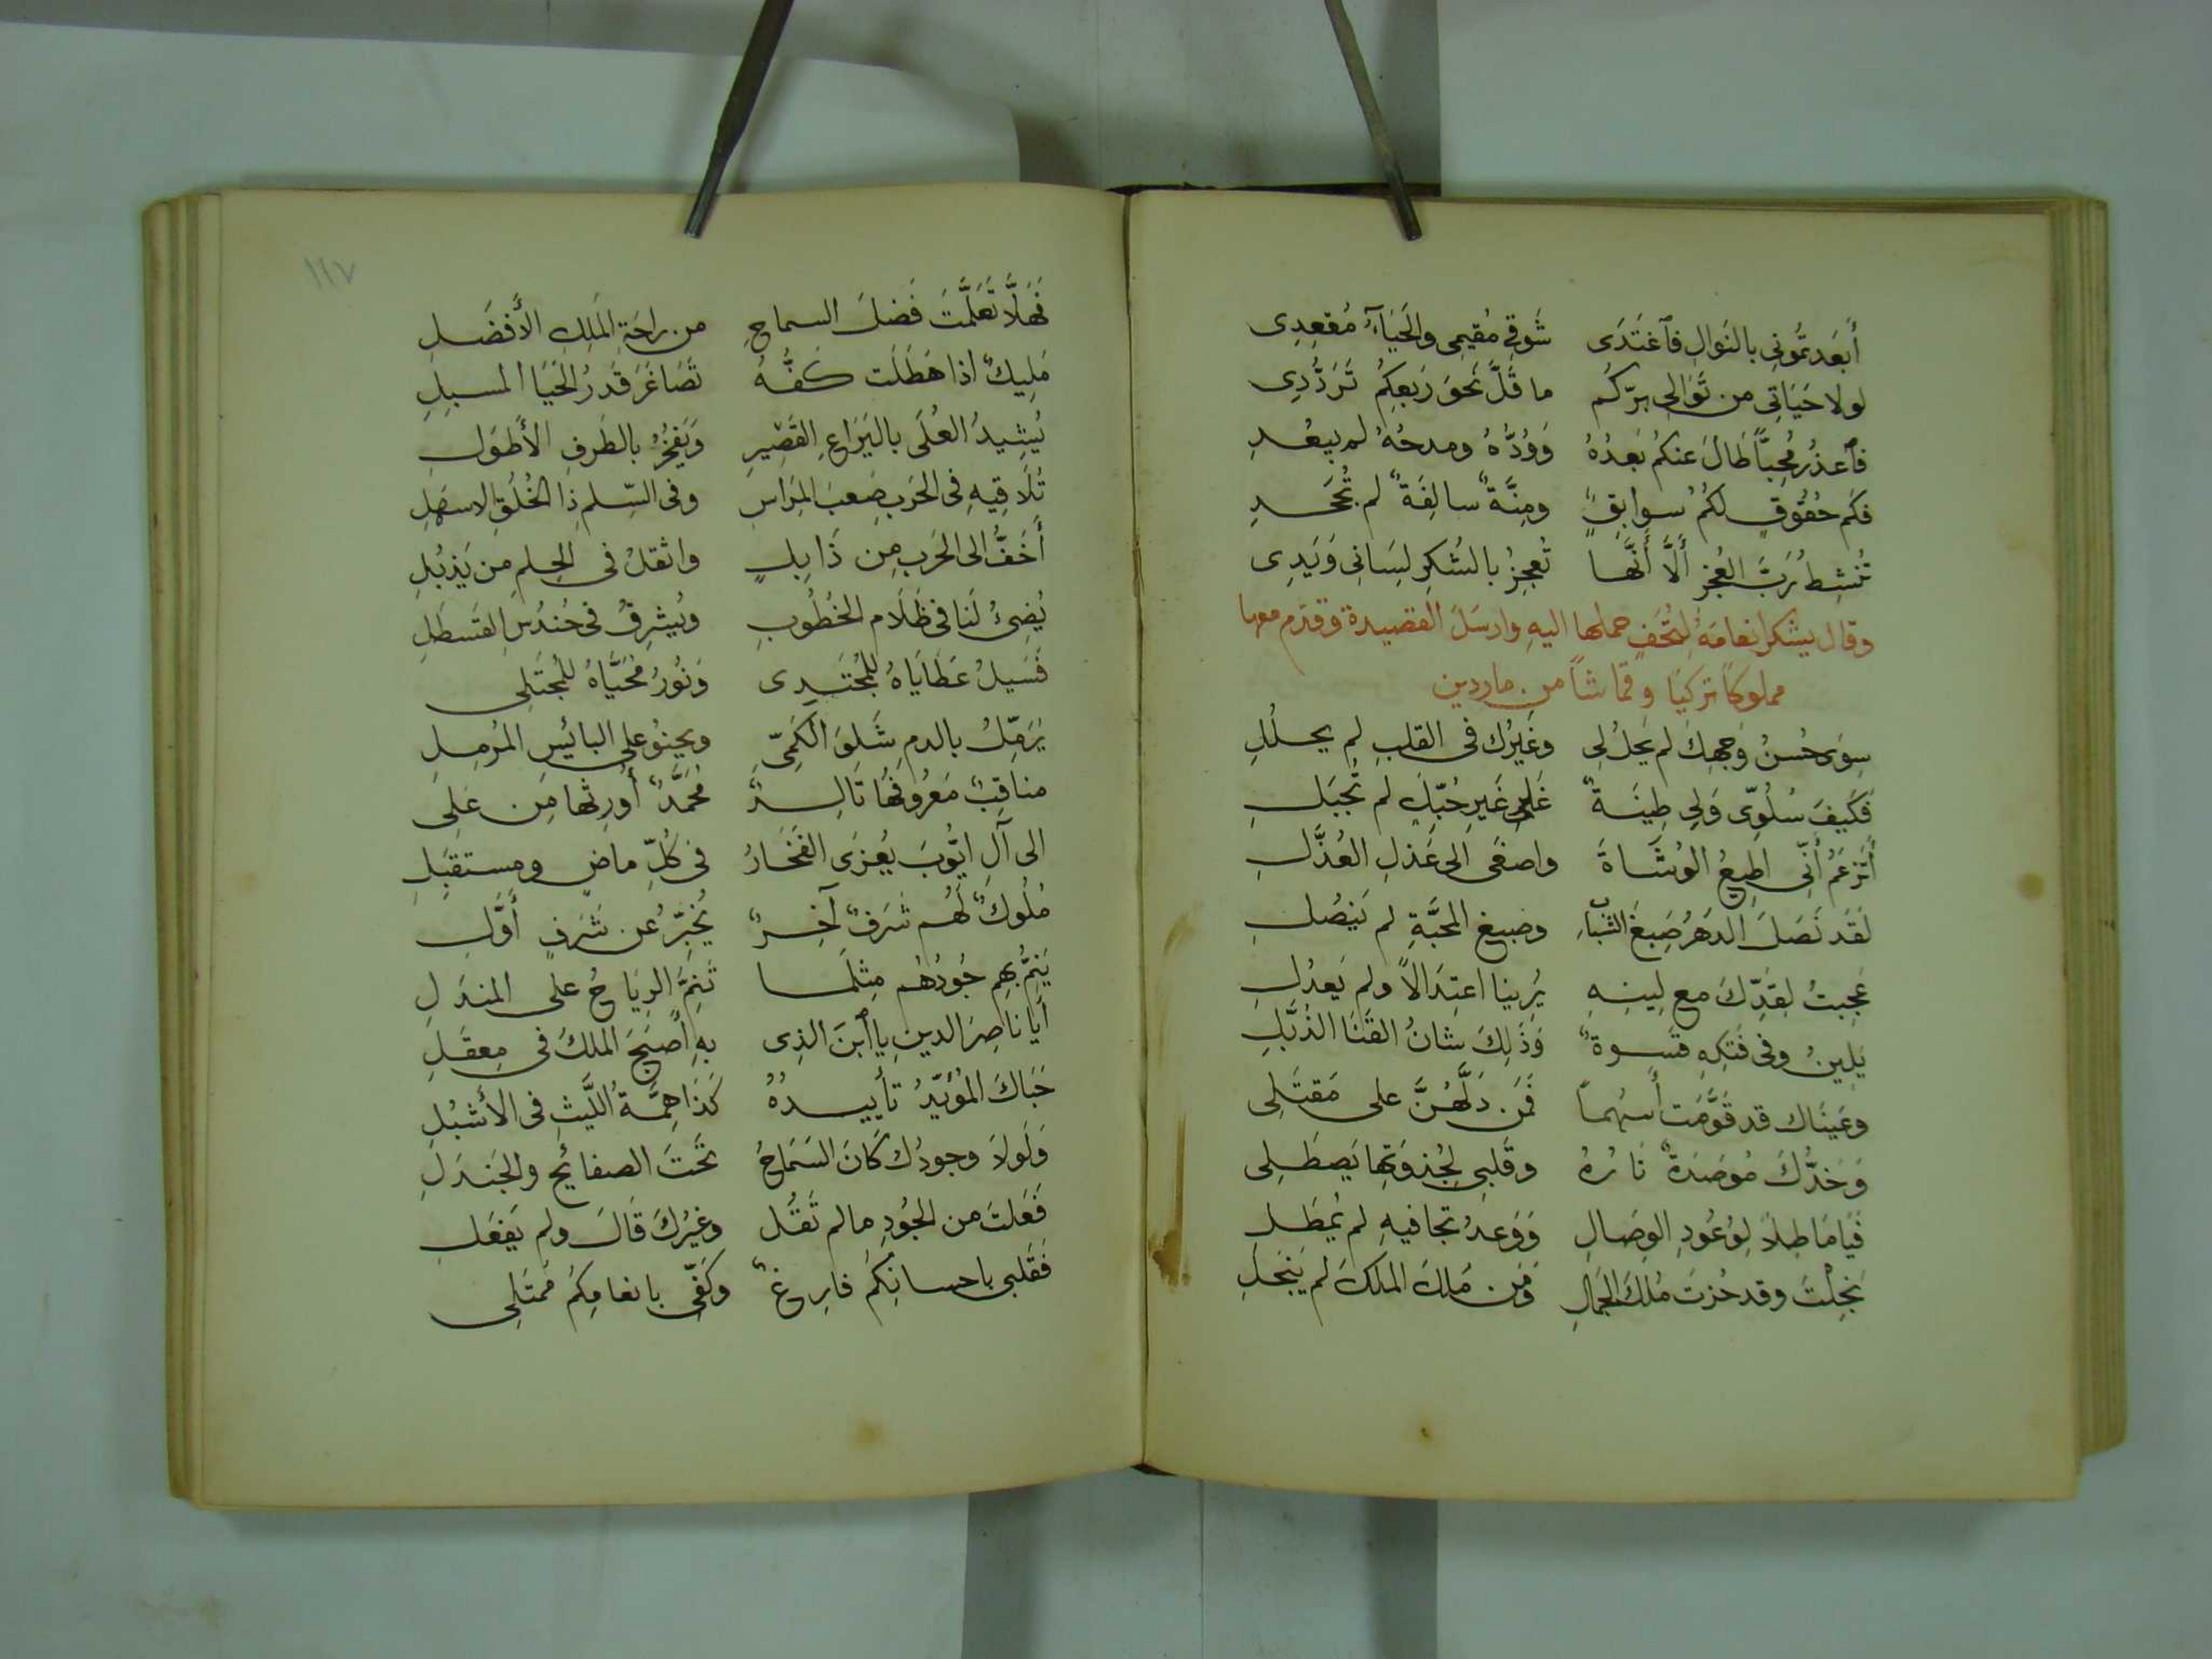 أَبعَدتُمُونِي بالنَوالِ فٱغتَدَى شَوقِي مُقيمِى والحَيَآءُ مُقعِدِى
لولا حَيَاتِي من تَوَالى بِرّكُم ما قَلَّ نَحوَ رَبعِكُم تَرَدُّدِى
فٱعذُر مُحِبّاً طَالَ عَنكُم بَعدُهُ وَوُدُّهُ ومدحُهُ لم يبعُدِ
فكَم حُقُوقٍ لكُمُ سوابِقٍ ومِنَّةٌ سالِفَةٌ لم تُجحَدِ
تُنشِطُ رَبَّ العُجزِ أَلَّا أَنَّها تُعجِزُ بالشُكرِ لِسَانِى وَيَدِى
وقال يشكر انعامَهُ لِتُحَفٍ حملها اليهِ وارسَلَ القصيدة وقدم معها
مملوكاً تركيّا وقماشاً من ماردين
سِوَى حُسنُ وَجهِكَ لم يَحلُ لِى وغَيرُك فى القلبِ لم يحلُلِ
فكَيفَ سُلُوِّى وَلِى طِينَةٌ عَلى غَيرِ حُبِّكِ لم تُجبَلِ
أَتَزعَمُ أَنِّى اطِيعُ الوُشَاةَ واصغَى الى عَذلِ العُذَّلِ
لَقَد نَصَلَ الدَهرُ صَبغَ الشَبَابِ وصبغ المحَبَّةِ لم يَنصُلِ
عَجِبتُ لِقَدِّكَ مع لِينِهِ يُرِينا اعتِدَالاً ولم يَعدُلِ
يَلِينُ وفى فَتكِهِ قَسوةٌ وَذَلِكَ شانُ القَنَا الذُبَّلِ
وعَينَاك قد قَوَّمَت أَسهُماً فَمَن دَلَّهُنَّ على مَقتَلِى
وَخَدُّكَ مُوصَدَةٌ نَارُهُ وقَلبِى لِجُذوَتِها يَصطَلِى
فَيَا مَاطِلاً لِوُعُودِ الوِصَالِ وَوَعدُ تجافيهِ لم يُمطَلِ
بَخِلتَ وقد حُزتَ مُلكَ الجَمالِ وَمَن مَلكَ الملكَ لم يَبخَلِ
١١٧
فَهَلَّا تَعَلَّمتَ فَضلَ السماحِ من راحَةِ المَلِكِ الأَفضَلِ
مَلِيكٌ اذا هَطَلَت كَفُّهُ تَصَاغَرَ قَدرُ الحَيَا المسبِلِ
يُشِيدُ العُلَى باليَرَاعِ القَصِيرِ وَيَفخُرُ بالطَرفِ الأَطوَلِ
تُلَاقِيهِ فى الحَربِ صَعبَ المِرَاسِ وفى السِّلمِ ذِا الخُلُقِ الاسهَلِ
أَخَفُّ الى الحَربِ مِن ذَابِلٍ واثقلُ فى الحِلمِ من يَذبُلِ
يُضِئُ لَنا فى ظَلَام الخُطُوبِ ويُشرِقُ فى حُندُسِ القسطَلِ
فَسَيلُ عَطَايَاهُ لِلمُجتَدِى وَنُورُ مُحَيَّاهُ للمُجتَلِى
يُرَمِّلُ بالدمِ شَلوَ الكَمِىِّ ويحنُو على البائِسِ المُرمِلِ
مناقِبٌ مَعرُوفُهَا تَالِدٌ مُحَمَّدٌ أُورِثَها مِن عَلِى
الى آلِ ايُّوبَ يُعزَى الفَخَارُ فى كُلِّ ماضٍ ومستقبَلِ
مُلُوكٌ لَهُم شَرَفٌ آخِرٌ يُخَبِّرُ عن شَرَفٍ أَوَّلِ
يَنِمُّ بِهِم جُودُهُم مِثلَما تَنِمُّ الرِيَاحُ على المندَلِ
أَيا ناصِرَ الدينِ يا ٱبنَ الذِى بهِ أَصبَحَ الملكُ فى مِعقَلِ
حَبَاكَ المُؤَيّدُ تأييدُهُ كَذَا هِمَّةُ اللَيثِ فى الأَشبُلِ
وَلَولَا وجودُك كَانَ السَمَاحُ تحَتَ الصفائِحِ والجَندَلِ
فَعَلتَ من الجُودِ ما لم تَقُل وغَيرُكَ قَالَ ولم يَفعَلِ
فَقَلبى باحسانِكُم فارِغٌ وكَفّى بانعامِكُم مُمتَلِى